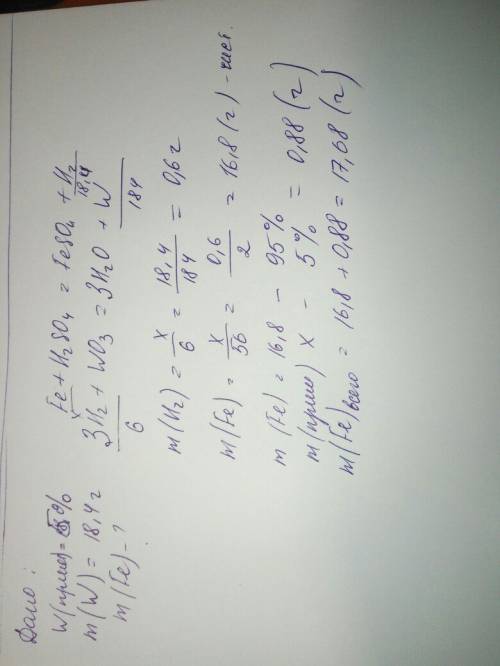 Дано:
W(прим)=5%
m(W) = 18,4 г
m(Fe) - ?
x
Fe + H₂SO₄ = FeSO₄ + H₂
18,4
3H₂ + WO₃ = 3H₂O + W
6 184
m(H₂) = x/6 = 18,4/184 = 0,6 г
m(Fe) = x/56 = 0,6/2 = 16,8 (г) - чист.
m(Fe) = 16,8 - 95%
m(прим) x - 5% = 0,88 (г)
m(Fe) всего = 16,8 + 0,88 = 17,68 (г)